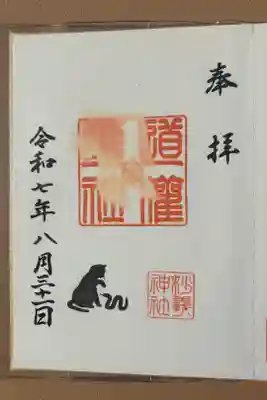 奉拝
道灌
社
妙義
神社
令和七年八月三十一日